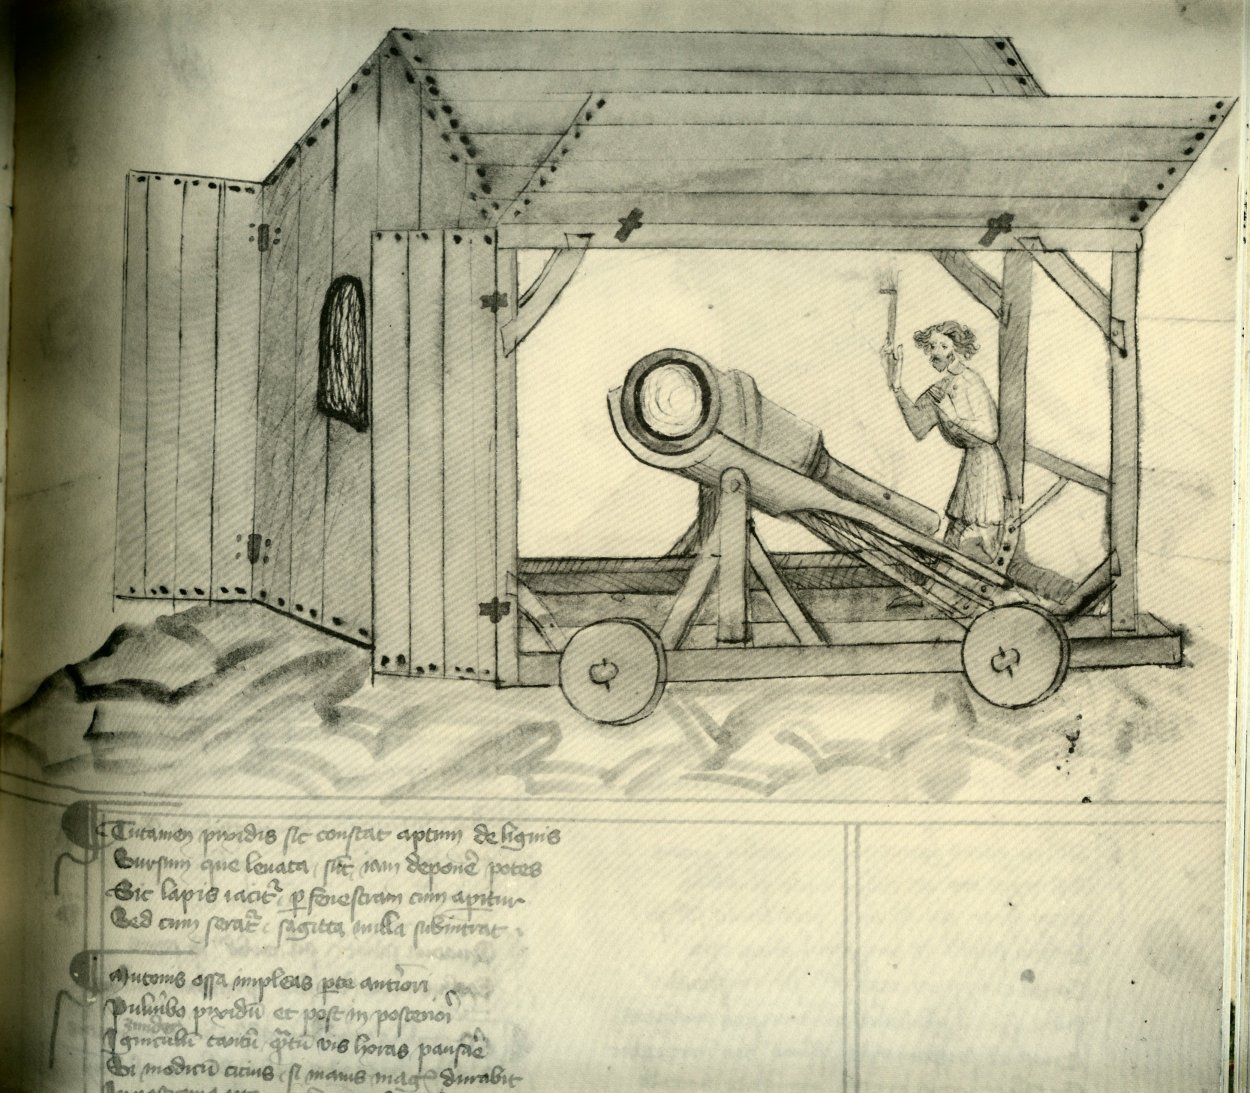 Tutamen pixidis sic constat aptum de lignis
Sursum que levata, sic iam deponere potes
Sic lapis iacitur, per fenestram cum apitur
Sed cum serat᷑, sagitta nulla subintrat
Mutonis ossa impleas pte antiori
Pulvibo pixidū et post in posteriori
Igniculū tantū qͣtū vis horas pausae
Si modicū citius, si maius mag durabit